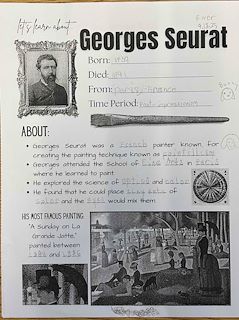 let's learn about
Georges Seurat
Born: 1859
Died: 1891
From: Paris, France
Time Period: Post-Impressionism
ABOUT:
Georges Seurat was a French painter known for
creating the painting technique known as pointillism
Georges attended the School of Fine Arts in Paris
where he learned to paint.
He explored the science of optics and color
He found that he could place tiny dots of
color and the eyes would mix them.
HIS MOST FAMOUS PAINTING:
"A Sunday on La
Grande Jatte,"
painted between
1884 and 1886